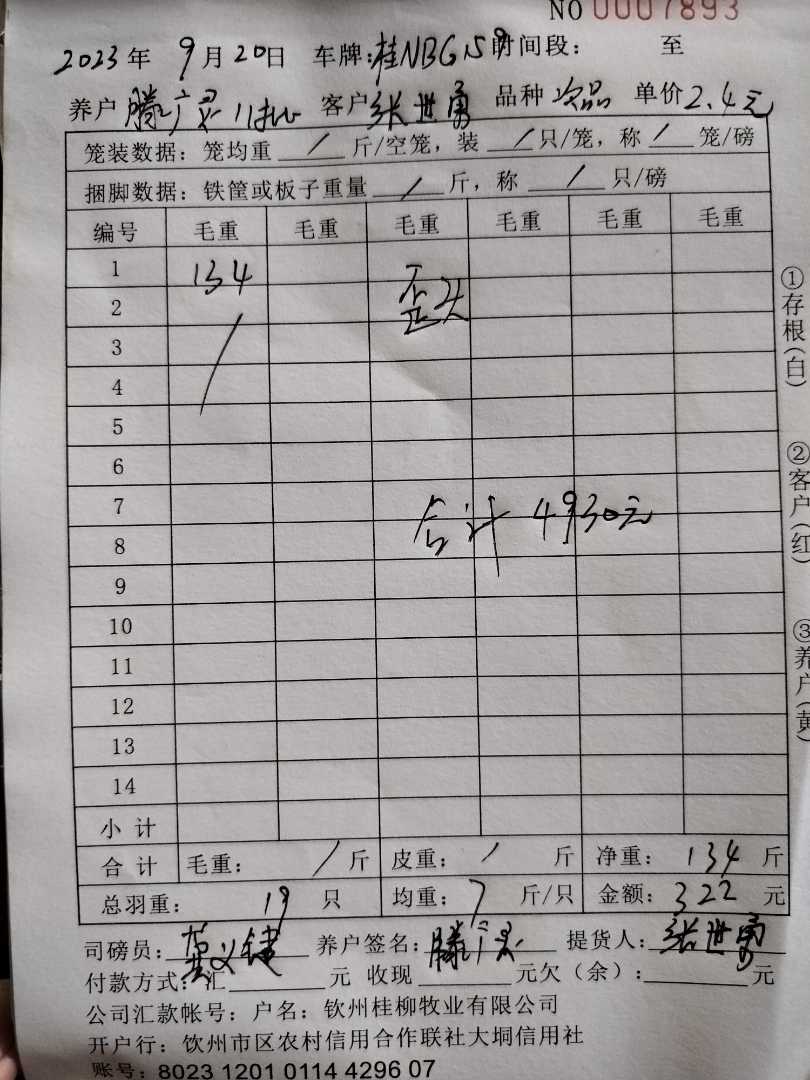 NO 0007893
2023年 9月20日 车牌:桂NBG159 时间段: 至
养户 滕广灵 客户 张世勇 品种 次品 单价2.4元
笼装数据: 笼均重 / 斤/空笼, 装 / 只/笼, 称 / 笼/磅
捆脚数据: 铁筐或板子重量 / 斤, 称 / 只/磅
编号 毛重 毛重 毛重 毛重 毛重 毛重
1 134
2 歪头
3 /
4
5
6
7 合计 4930元
8
9
10
11
12
13
14
小计
合计 毛重: / 斤 皮重: / 斤 净重: 134 斤
总羽重: 19 只 均重: 7 斤/只 金额: 322 元
司磅员: 义键 养户签名: 滕广灵 提货人: 张世勇
付款方式: 汇 元 收现 元欠(余): 元
公司汇款帐号: 户名: 钦州桂柳牧业有限公司
开户行: 钦州市区农村信用合作联社大垌信用社
账号: 8023 1201 0114 4296 07
①存根(白)
②客户(红)
③养户(黄)